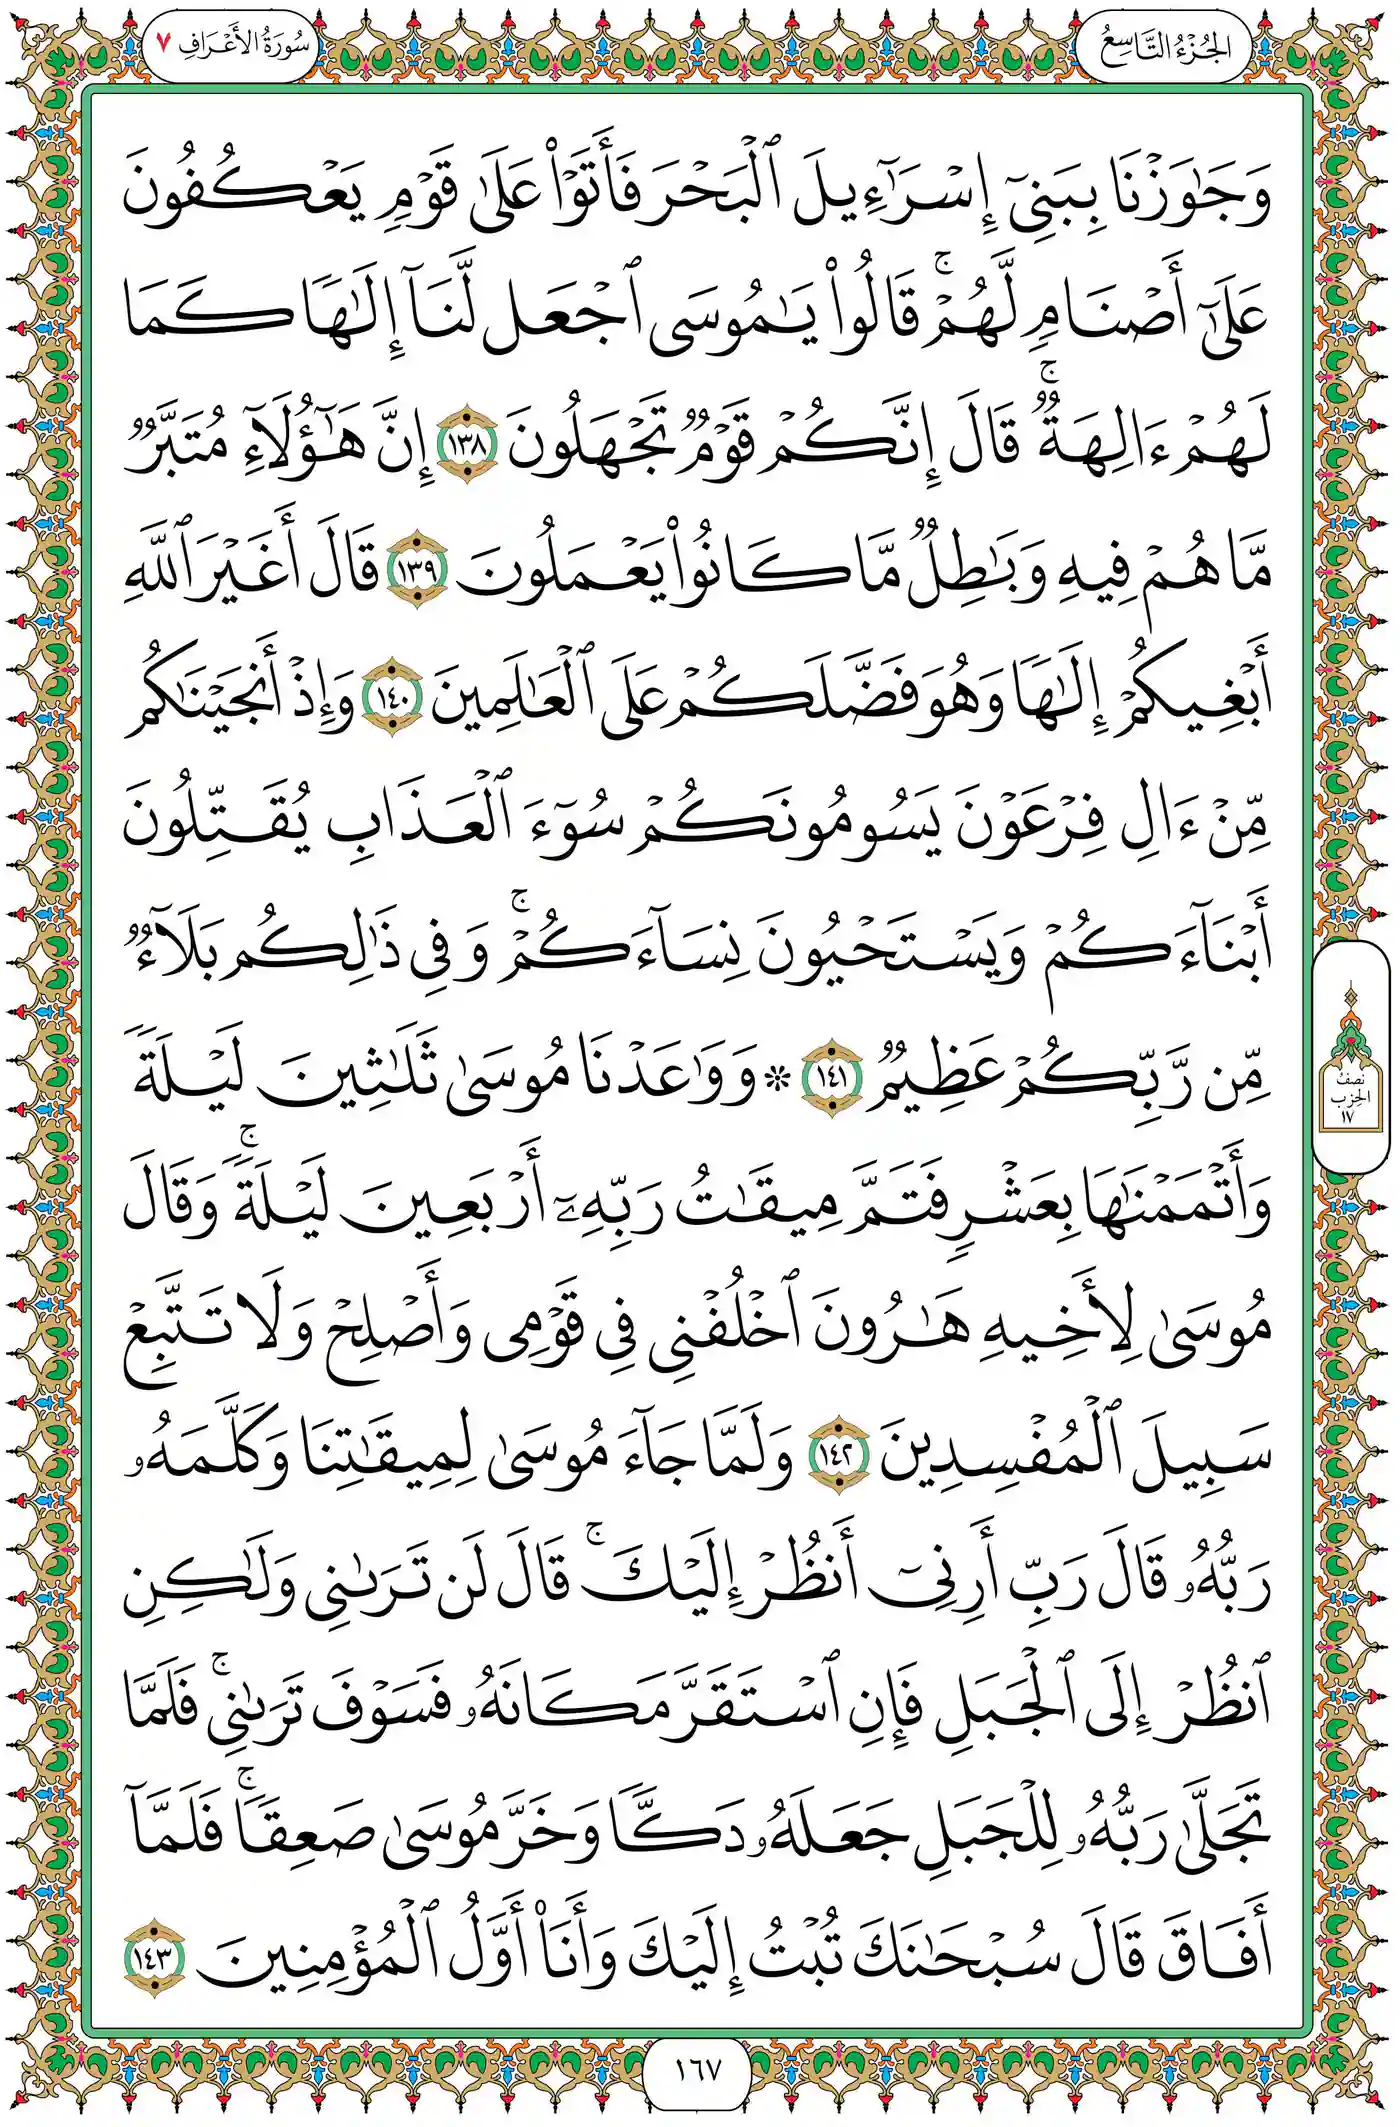 الجُزْءُ التَّاسِعُ
سُورَةُ الأَعْرَافِ ٧
وَجَٰوَزْنَا بِبَنِىٓ إِسْرَٰٓءِيلَ ٱلْبَحْرَ فَأَتَوْا۟ عَلَىٰ قَوْمٍ يَعْكُفُونَ
عَلَىٰٓ أَصْنَامٍ لَّهُمْ ۚ قَالُوا۟ يَٰمُوسَى ٱجْعَل لَّنَآ إِلَٰهًا كَمَا
لَهُمْ ءَالِهَةٌ ۚ قَالَ إِنَّكُمْ قَوْمٌ تَجْهَلُونَ ١٣٨ إِنَّ هَٰٓؤُلَآءِ مُتَبَّرٌ
مَّا هُمْ فِيهِ وَبَٰطِلٌ مَّا كَانُوا۟ يَعْمَلُونَ ١٣٩ قَالَ أَغَيْرَ ٱللَّهِ
أَبْغِيكُمْ إِلَٰهًا وَهُوَ فَضَّلَكُمْ عَلَى ٱلْعَٰلَمِينَ ١٤٠ وَإِذْ أَنجَيْنَٰكُم
مِّنْ ءَالِ فِرْعَوْنَ يَسُومُونَكُمْ سُوٓءَ ٱلْعَذَابِ يُقَتِّلُونَ
أَبْنَآءَكُمْ وَيَسْتَحْيُونَ نِسَآءَكُمْ ۚ وَفِى ذَٰلِكُم بَلَآءٌ
مِّن رَّبِّكُمْ عَظِيمٌ ١٤١ * وَوَٰعَدْنَا مُوسَىٰ ثَلَٰثِينَ لَيْلَةً
وَأَتْمَمْنَٰهَا بِعَشْرٍ فَتَمَّ مِيقَٰتُ رَبِّهِۦٓ أَرْبَعِينَ لَيْلَةً ۚ وَقَالَ
مُوسَىٰ لِأَخِيهِ هَٰرُونَ ٱخْلُفْنِى فِى قَوْمِى وَأَصْلِحْ وَلَا تَتَّبِعْ
سَبِيلَ ٱلْمُفْسِدِينَ ١٤٢ وَلَمَّا جَآءَ مُوسَىٰ لِمِيقَٰتِنَا وَكَلَّمَهُۥ
رَبُّهُۥ قَالَ رَبِّ أَرِنِىٓ أَنظُرْ إِلَيْكَ ۚ قَالَ لَن تَرَىٰنِى وَلَٰكِنِ
ٱنظُرْ إِلَى ٱلْجَبَلِ فَإِنِ ٱسْتَقَرَّ مَكَانَهُۥ فَسَوْفَ تَرَىٰنِى ۚ فَلَمَّا
تَجَلَّىٰ رَبُّهُۥ لِلْجَبَلِ جَعَلَهُۥ دَكًّا وَخَرَّ مُوسَىٰ صَعِقًا ۚ فَلَمَّآ
أَفَاقَ قَالَ سُبْحَٰنَكَ تُبْتُ إِلَيْكَ وَأَنَا۠ أَوَّلُ ٱلْمُؤْمِنِينَ ١٤٣
نصف
الحِزب
١٧
١٦٧